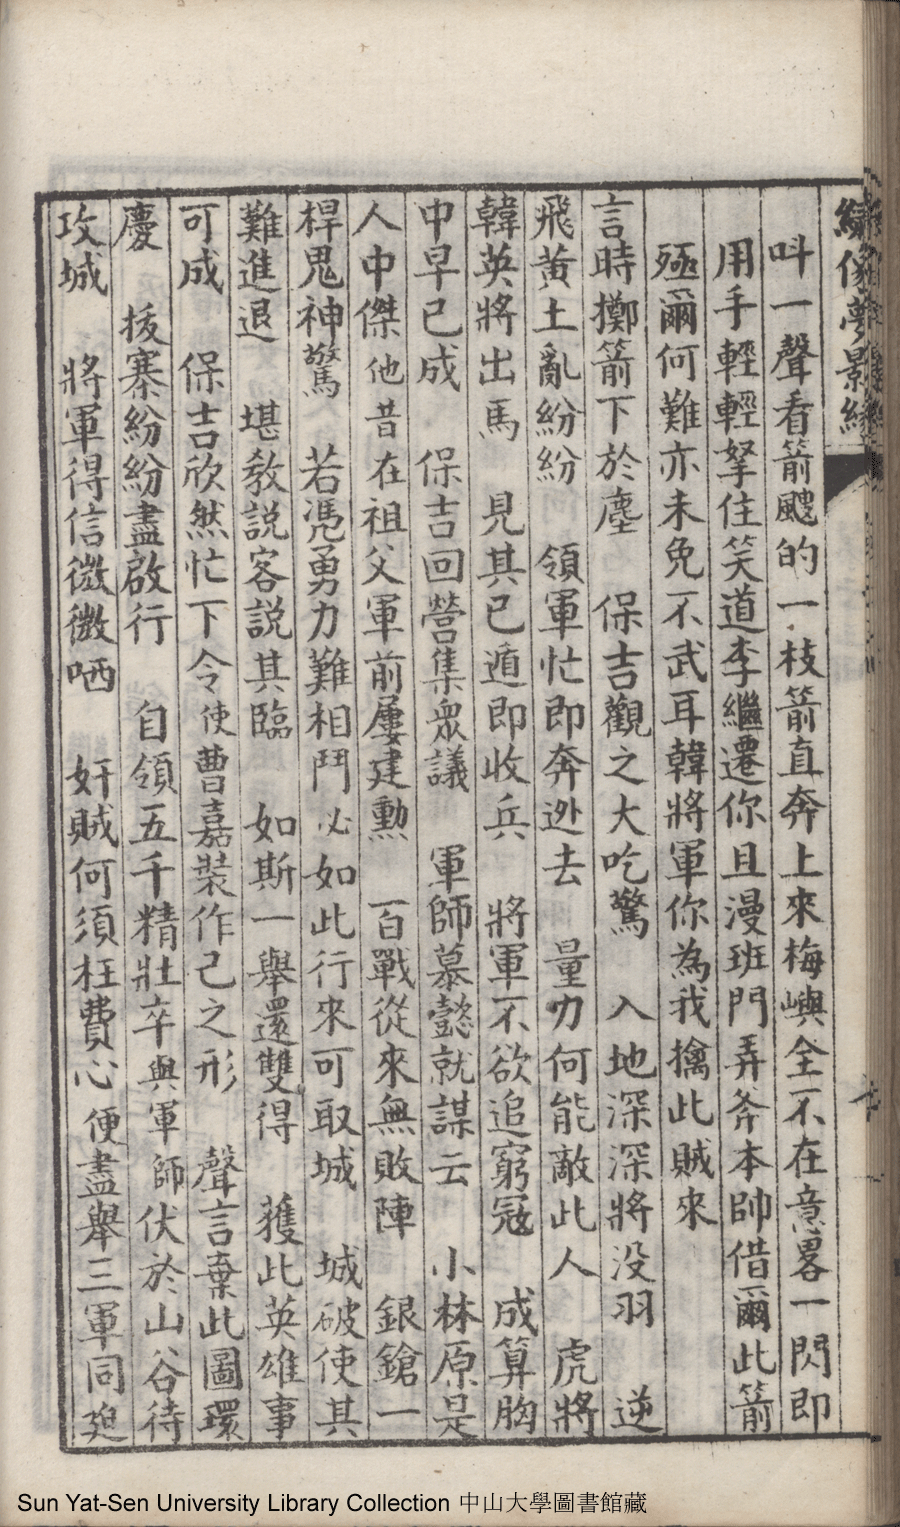 繡像夢影緣
叫一聲看箭颼的一枝箭直奔上來梅嶼全不在意畧一閃即
用手輕輕拏住笑道李繼遷你且漫班門弄斧本帥借爾此箭
殛爾何難亦未免不武耳韓將軍你為我擒此賊來
言時擲箭下於塵　保吉觀之大吃驚　入地深深將没羽　逆
飛黃土亂紛紛　領軍忙即奔迯去　量力何能敵此人　虎將
韓英將出馬　見其已遁即收兵　將軍不欲追窮冦　成算胸
中早已成　保吉回營集衆議　軍師慕懿就謀云　小林原是
人中傑他昔在祖父軍前屢建勲　百戰從來無敗陣　銀鎗一
桿鬼神驚　若凴勇力難相鬥必如此行來可取城　城破使其
難進退　堪敎説客説其臨　如斯一舉還雙得　獲此英雄事
可成　保吉欣然忙下令使曹嘉裝作己之形　聲言棄此圖環
慶　拔寨紛紛盡啟行　自領五千精壯卒與軍師伏於山谷待
攻城　將軍得信微微哂　奸賊何須枉費心便盡舉三軍同起
Sun Yat-Sen University Library Collection 中山大學圖書館藏